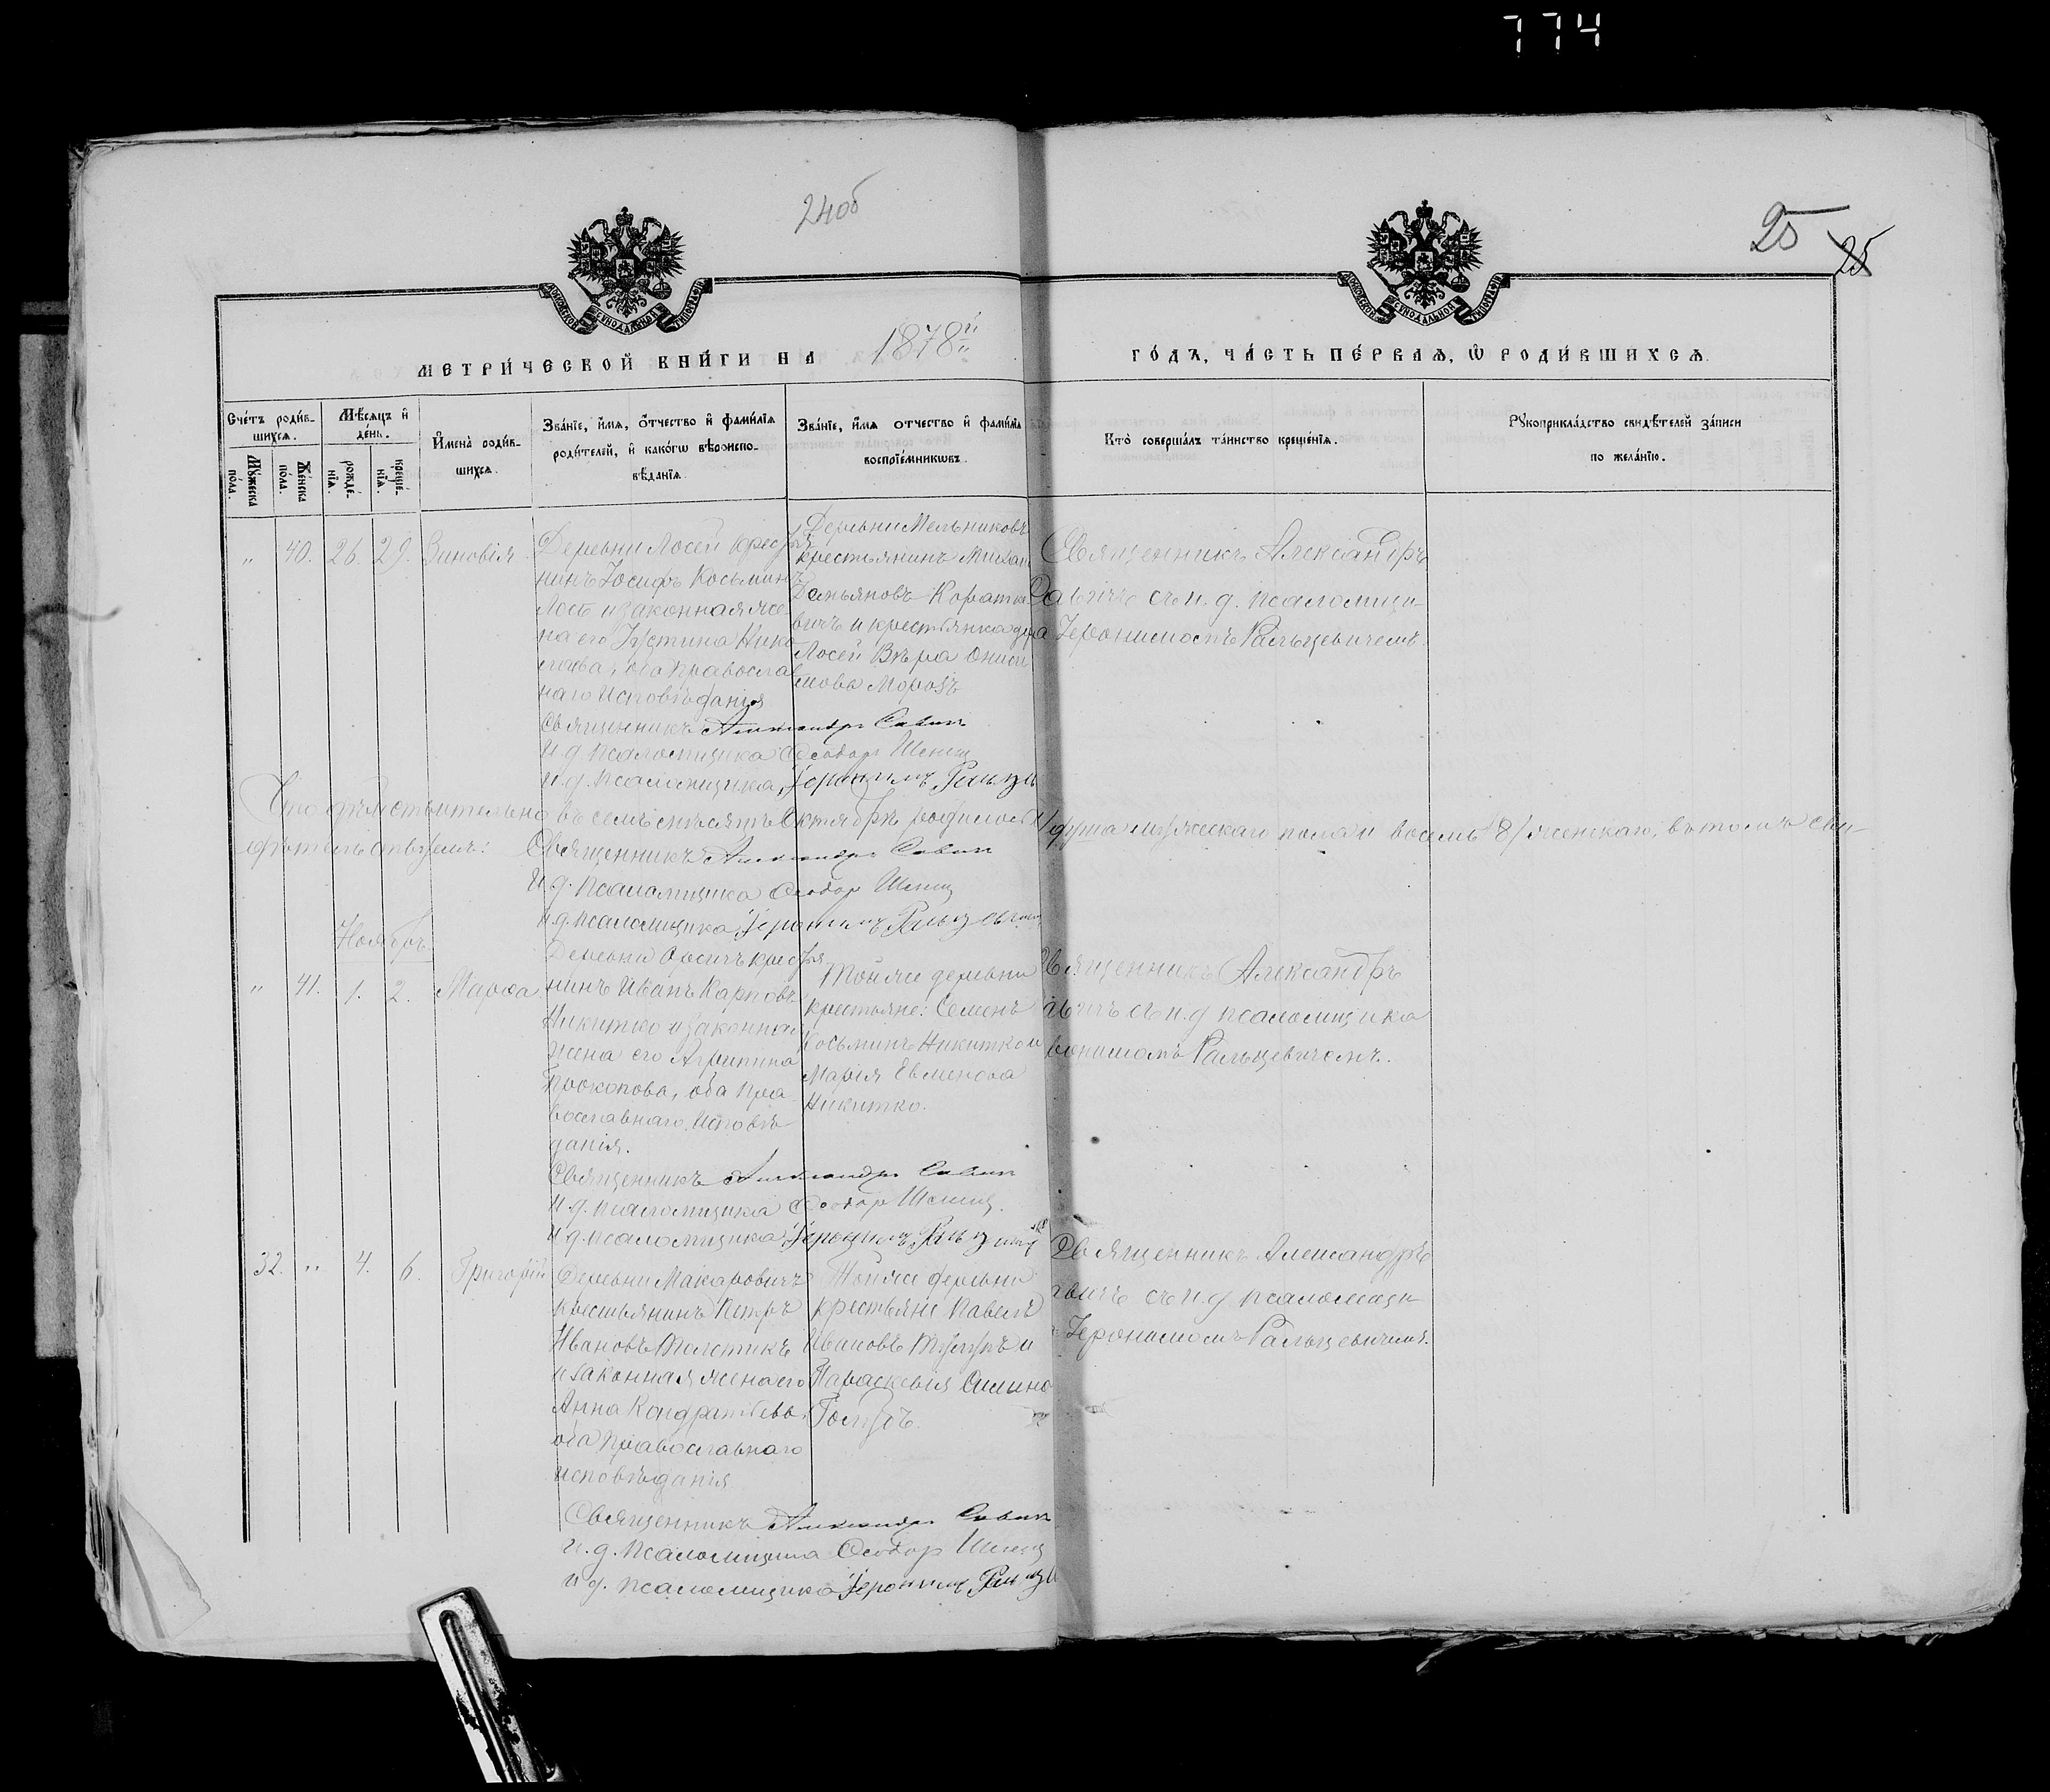 774
24об
25
25
МОСКОВСКОЙ СѴНОДАЛЬНОЙ ТИПОГРАФІИ
МОСКОВСКОЙ СѴНОДАЛЬНОЙ ТИПОГРАФІИ
МЕТРИ́ЧЕСКОЙ КНИ́ГИ НА 1878й ГО́ДЪ, ЧА́СТЬ ПЕ́РВАѦ, Ѡ РОДИ́ВШИХСѦ.
Сче́тъ роди́в-
шихсѧ.
Мꙋ́жеска
по́ла.
Же́нска
по́ла.
Мѣ́сѧцъ и҆
де́нь.
рожде́-
нїѧ.
креще́-
нїѧ.
И҆мена̀ роди́в-
шихсѧ.
Зва́нїе, и҆́мѧ, ѻ҆́тчество и҆ фами́лїѧ
роди́телей, и҆ како́гѡ вѣроиспо-
вѣ́данїѧ.
Зва́нїе, и҆́мѧ ѻ҆́тчество и҆ фами́лїѧ
воспрїе́мникѡвъ.
Кто̀ соверша́лъ та́инство креще́нїѧ.
Рꙋкоприкла́дство свидѣ́телей за́писи
по жела́нїю.
" 40. 26. 29. Зиновія
Деревни Лосей крестья
нинъ Іосифъ Косьминъ
Лось и законная же-
на его Іустина Нико
лаева, оба православ
наго Исповѣданія
Деревни Мельниковъ
крестьянинъ Михаи
Демьяновъ Коратке-
вичъ и крестьянка дер
Лосей Вѣра Ониси
мова Морозъ
Священникъ Александръ
Савичъ съ и. д. псаломщи-
ка Іеронимомъ Ральцевичемъ.
Священникъ Александръ Савичъ
И. д. псаломщика Ѳеодоръ Шениц
И. д. псаломщика Іеронимъ Ральце
Что дѣйствительно въ семъ мѣсяцѣ Октябрѣ родилось душа мужескаго пола и восемь /8/ женскаго, въ томъ сви-
дѣтельствуемъ:
Священникъ Александръ Савичъ
И. д. псаломщика Ѳеодоръ Шениц
И. д. псаломщика Іеронимъ Ральцевичъ
Ноябрь
" 41. 1. 2. Марѳа
крестья
нинъ Иванъ Карповъ
Никитко и законная
жена его Агрипина
Прокопова, оба Пра-
вославнаго Исповѣ
данія.
Той же деревни
крестьяне: Семенъ
Косьминъ Никитко и
Марія Евменова
Никитко.
Священникъ Александръ
авичъ съ и. д псаломщика
ронимомъ Ральцевичемъ.
Священникъ Александръ Савичъ
И. д. псаломщика Ѳеодоръ Шениц.
И д. псаломщика Іеронимъ Ральцевич
32. " 4. 6. Григорій
Деревни Макаровичъ
крестьянинъ Петръ
Ивановъ Толстикъ
и законная жена его
Анна Кондратьева,
оба Православнаго
исповѣданія
Той же деревни
крестьяне Павелъ
Ивановъ и
Параскевія
Священникъ Александръ
авичъ съ и. д псаломщи-
Іеронимомъ Ральцевичемъ.
Священникъ Александръ Савичъ
И. д. псаломщика Ѳеодоръ Шениц
И д. псаломщика Іеронимъ Ральце